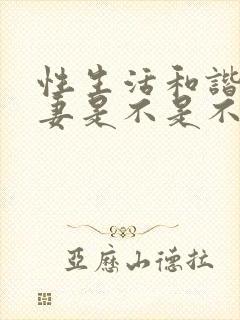 性生活和諧
妻是不是不
亞歷山德拉